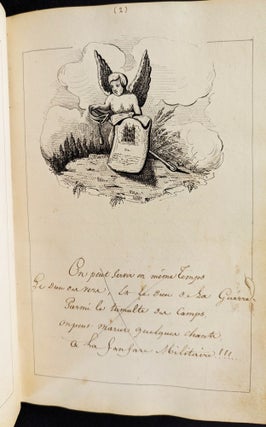 (2)
On peut servir en même Temps
Le Dieu du vers et le Dieu de la Guerre
Parmi le tumulte des Camps
on peut marier quelque chants
a La fanfare Militaire !!!